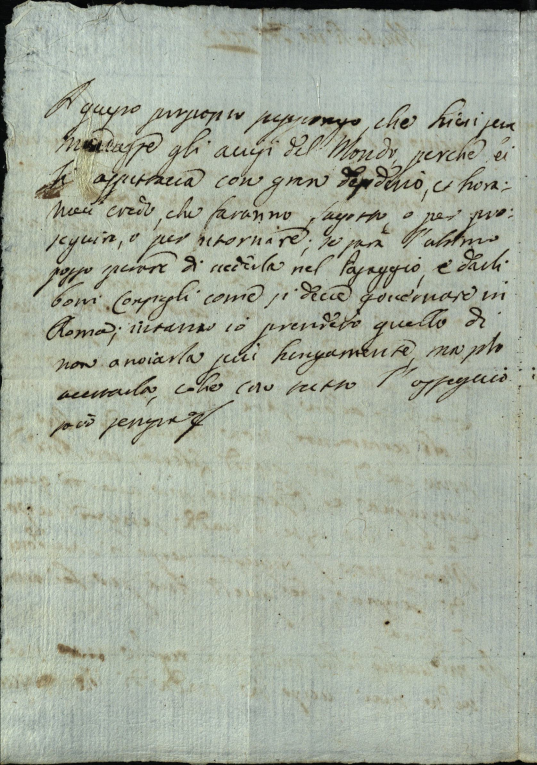 A questo proposito suppongo, che hieri sera
mancassè gli avisi del Mondo perchè ei
si aspettava con gran desiderio, et hora-
mai credo, che saranno o per pro-
seguire, o per ritornare; se sarà l'ultimo
posso sperare di vederla nel Passaggio, e darli
boni Consigli come si deve governare in
Roma; intanto io prenderò quello di
non anoiarla più lungamente, ma
acertarla, che con tutto l'ossequio
sarò sempre